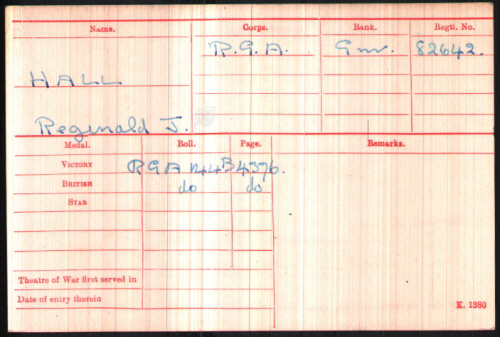 Name. Corps. Rank. Regtl. No.
R.G.A. Gnr. 82642.
HALL
Reginald J.
Medal. Roll. Page. Remarks.
VICTORY RGA 144B 4376.
BRITISH do do
STAR
Theatre of War first served in
Date of entry therein
K. 1380